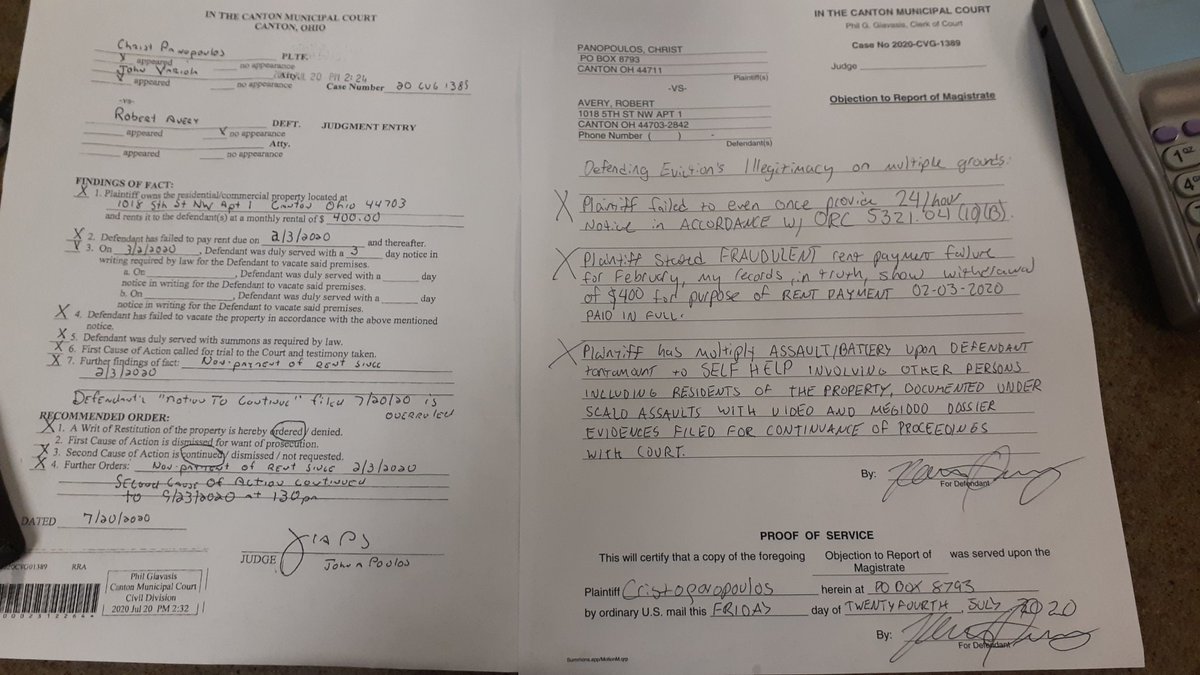 IN THE CANTON MUNICIPAL COURT
CANTON, OHIO
Christ Panopoulos PLTF.
X appeared no appearance
John Varion Atty. JUL 20 PM 2:24
X appeared no appearance Case Number 20 CVG 1389
-vs-
Robert Avery DEFT. JUDGMENT ENTRY
appeared X no appearance
Atty.
appeared no appearance
FINDINGS OF FACT:
X 1. Plaintiff owns the residential/commercial property located at
1018 5th St NW Apt 1 Canton Ohio 44703
and rents it to the defendant(s) at a monthly rental of $ 400.00
X 2. Defendant has failed to pay rent due on 2/3/2020 and thereafter.
X 3. On 3/2/2020, Defendant was duly served with a 3 day notice in
writing required by law for the Defendant to vacate said premises.
a. On , Defendant was duly served with a day
notice in writing for the Defendant to vacate said premises.
b. On , Defendant was duly served with a day
notice in writing for the Defendant to vacate said premises.
X 4. Defendant has failed to vacate the property in accordance with the above mentioned
notice.
X 5. Defendant was duly served with summons as required by law.
X 6. First Cause of Action called for trial to the Court and testimony taken.
X 7. Further findings of fact: Non-payment of Rent since
2/3/2020
Defendant's "Motion To Continue" filed 7/20/20 is
overruled
RECOMMENDED ORDER:
X 1. A Writ of Restitution of the property is hereby ordered / denied.
2. First Cause of Action is dismissed for want of prosecution.
X 3. Second Cause of Action is continued / dismissed / not requested.
X 4. Further Orders: Non-payment of Rent since 2/3/2020
Second Cause of Action continued
to 9/23/2020 at 130pm
DATED 7/20/2020
JUDGE
John A Poulos
2020CVG01389 RRA
0002312264
Phil Giavasis
Canton Municipal Court
Civil Division
2020 Jul 20 PM 2:32
IN THE CANTON MUNICIPAL COURT
Phil G. Giavasis, Clerk of Court
PANOPOULOS, CHRIST
PO BOX 8793
CANTON OH 44711
Plaintiff(s)
Case No 2020-CVG-1389
Judge
-VS-
Objection to Report of Magistrate
AVERY, ROBERT
1018 5TH ST NW APT 1
CANTON OH 44703-2842
Phone Number ( ) -
Defendant(s)
Defending Eviction's Illegitimacy on multiple grounds:
X Plaintiff failed to even once provide 24/hour
Notice in ACCORDANCE W/ ORC 5321.04 (10)(B).
X Plaintiff stated FRAUDULENT rent payment failure
for February, my records, in truth, show withdrawal
of $400 for purpose of RENT PAYMENT 02-03-2020
PAID IN FULL.
X Plaintiff has multiply ASSAULT/BATTERY upon DEFENDANT
tantamount to SELF HELP INVOLVING OTHER PERSONS
INCLUDING RESIDENTS OF THE PROPERTY, DOCUMENTED UNDER
SCALD ASSAULTS WITH VIDEO AND MEGIDDO DOSSIER
EVIDENCES FILED FOR CONTINUANCE OF PROCEEDINGS
WITH COURT.
By:
For Defendant
PROOF OF SERVICE
This will certify that a copy of the foregoing Objection to Report of Magistrate was served upon the
Plaintiff Cristopanopoulos herein at PO BOX 8793
by ordinary U.S. mail this FRIDAY day of TWENTYFOURTH, JULY 2020
By:
For Defendant
Summons.app/MotionM.qrp
1oz
4oz